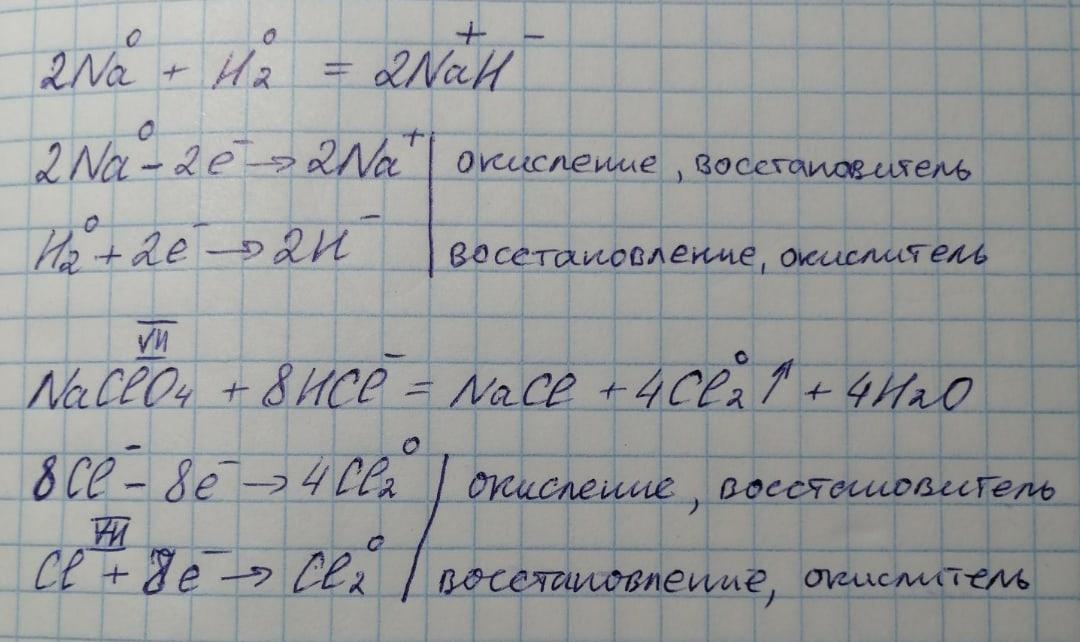 2Na⁰ + H₂⁰ = 2Na⁺H⁻
2Na⁰ - 2e⁻ → 2Na⁺ | окисление, восстановитель
H₂⁰ + 2e⁻ → 2H⁻ | восстановление, окислитель
NaCl^VII O₄ + 8HCl⁻ = NaCl + 4Cl₂⁰↑ + 4H₂O
8Cl⁻ - 8e⁻ → 4Cl₂⁰ | окисление, восстановитель
Cl^VII + 8e⁻ → Cl₂⁰ | восстановление, окислитель